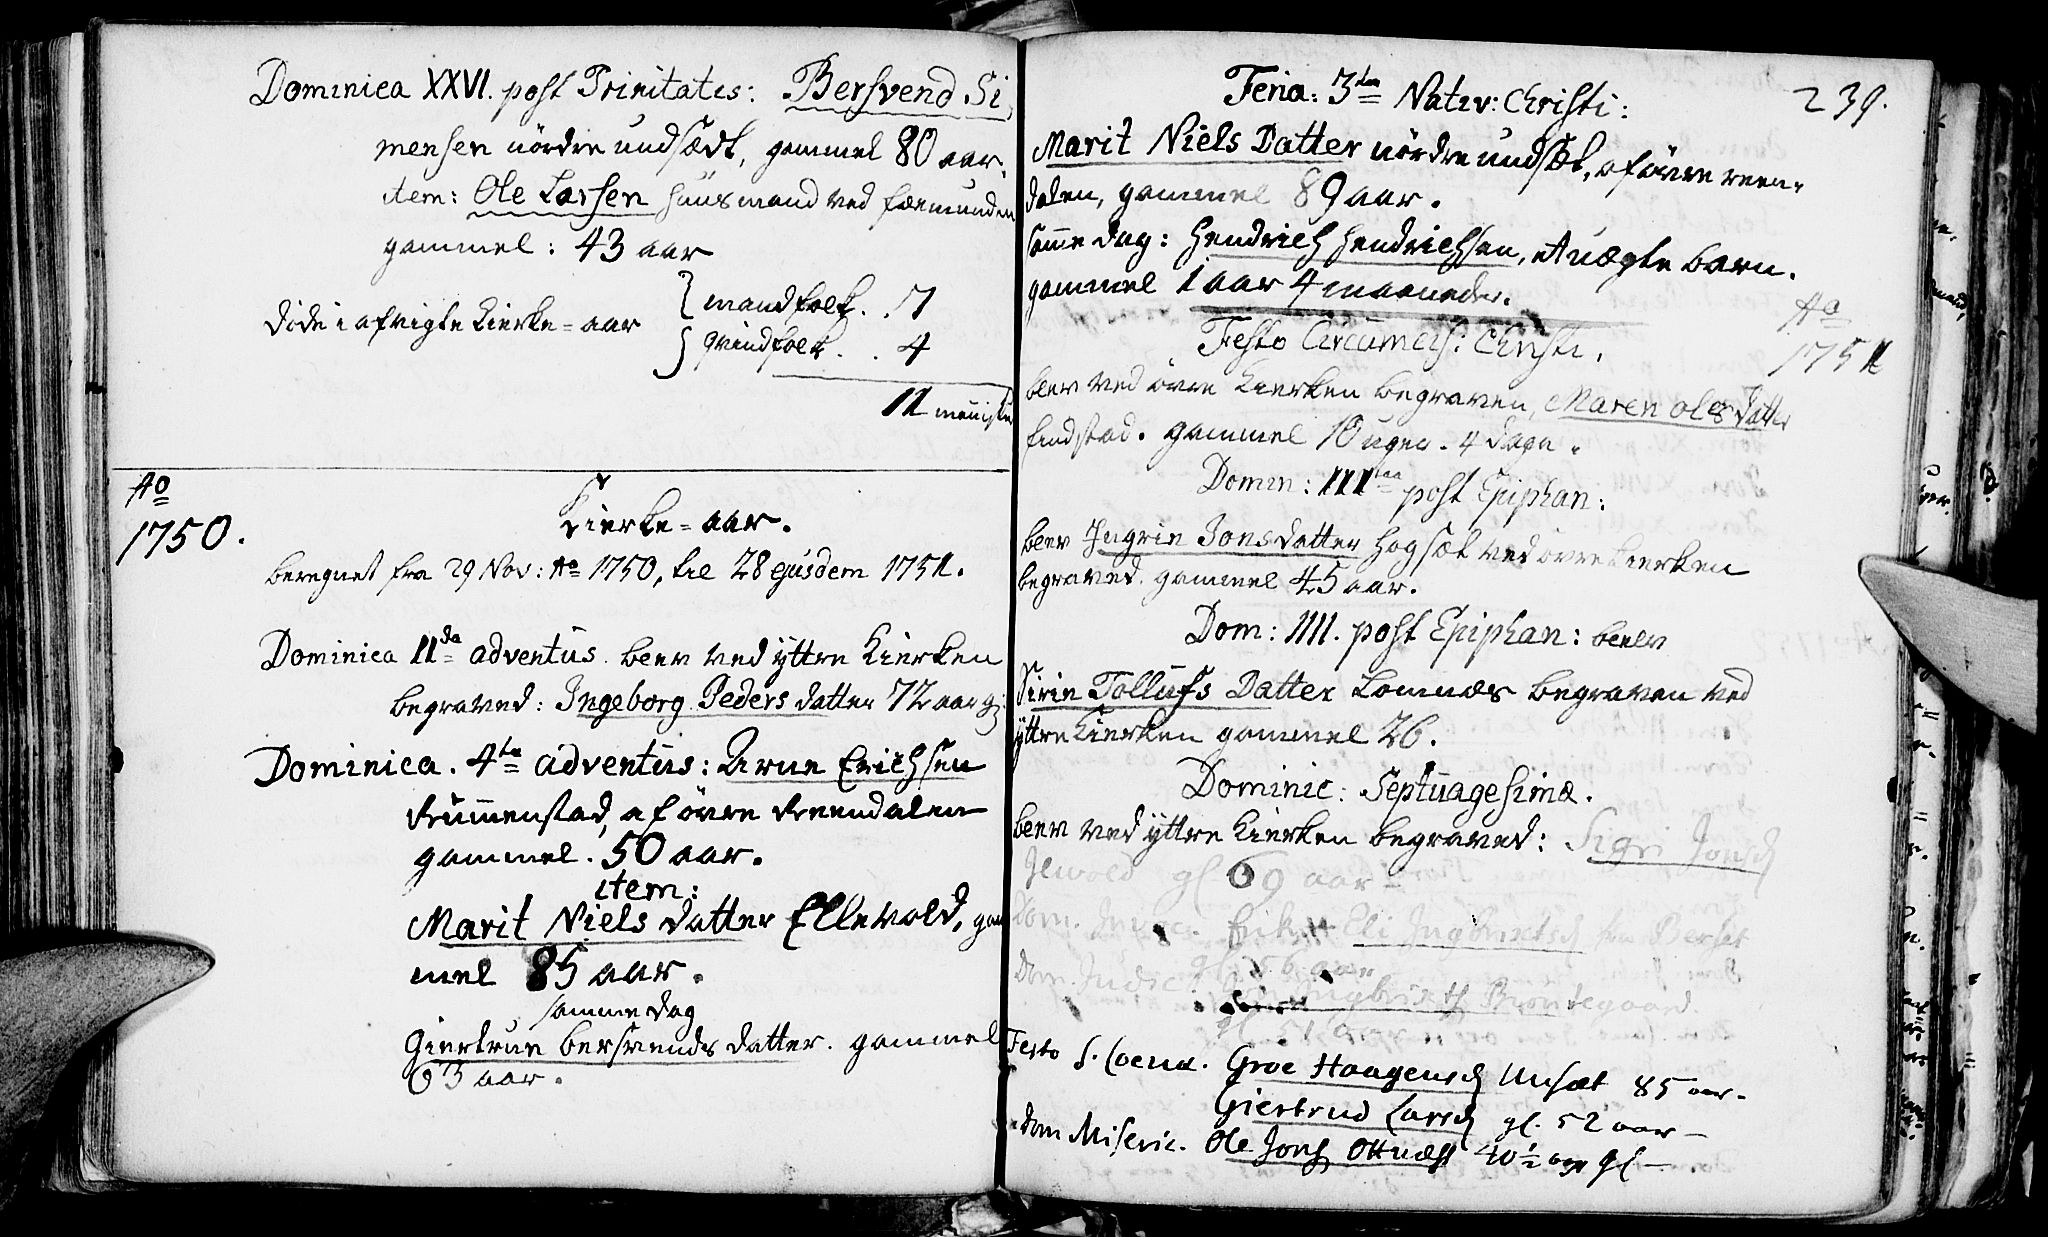 Dominica XXVI. post Trinitatis: Bersvend Si
mensen nördre undsædt, gammel 80 aar.
item: Ole Larsen huusmand ved fæemunden
gammel: 43 aar
döde i afvigte Kierke-aar
mandfolk. . 7
qvindfolk. . 4
11 mennisker
Ao
1750.
Kierke-aar.
beregnet fra 29 Nov: Ao 1750, til 28 ejusdem 1751.
Dominica IIda adventus. blev ved yttre Kierken
begraved: Ingeborg Peders datter 72 aar g:
Dominica. 4ta adventus: Arne Erichsen
Krummenstad, af övre Reendalen
gammel. 50 aar.
item:
Marit Niels datter Ellevold, gam
mel 85 aar.
samme dag
Giertrue bersvends datter. gammel
63 aar.
239.
Feria: 3tia Nativ: Christi:
Marit Niels Datter nördre undsæt, af övre reen-
dalen, gammel 89 aar.
samme dag: Hendrich Hendrichsen, et uægte barn.
gammel 1 aar 4 maaneder.
Ao
1751
Festo Circumcis: Christi.
blev ved övre Kierken begraven, Maren Oles Datter
findstad. gammel 10 uger. 4 dage.
Domin: IIItia post Epiphan:
blev Ingrin Jonsdatter Hogsæt ved övre Kierken
begraved. gammel 45 aar.
Dom: IIII. post Epiphan: blev
Sirin Tollufs Datter Lomnæs begraven ved
yttre Kierken gammel 26.
Dominic: Septuagesimæ.
blev ved yttre Kierken begraved: Sigri Jonsd
Elvold gl. 69 aar
Dom. Invoc. Eli Ingbrixtsd fra Berset
gl. 56 aar
Dom. Judic. Ingbrixts
gl. 51 aar
Festo S. Coenæ. Groe Haagensd Unsæt 85 aar.
Giertrud Larsd gl. 52 aar
Dom Miseric. Ole Jons Ottnæs 40½ aar gl